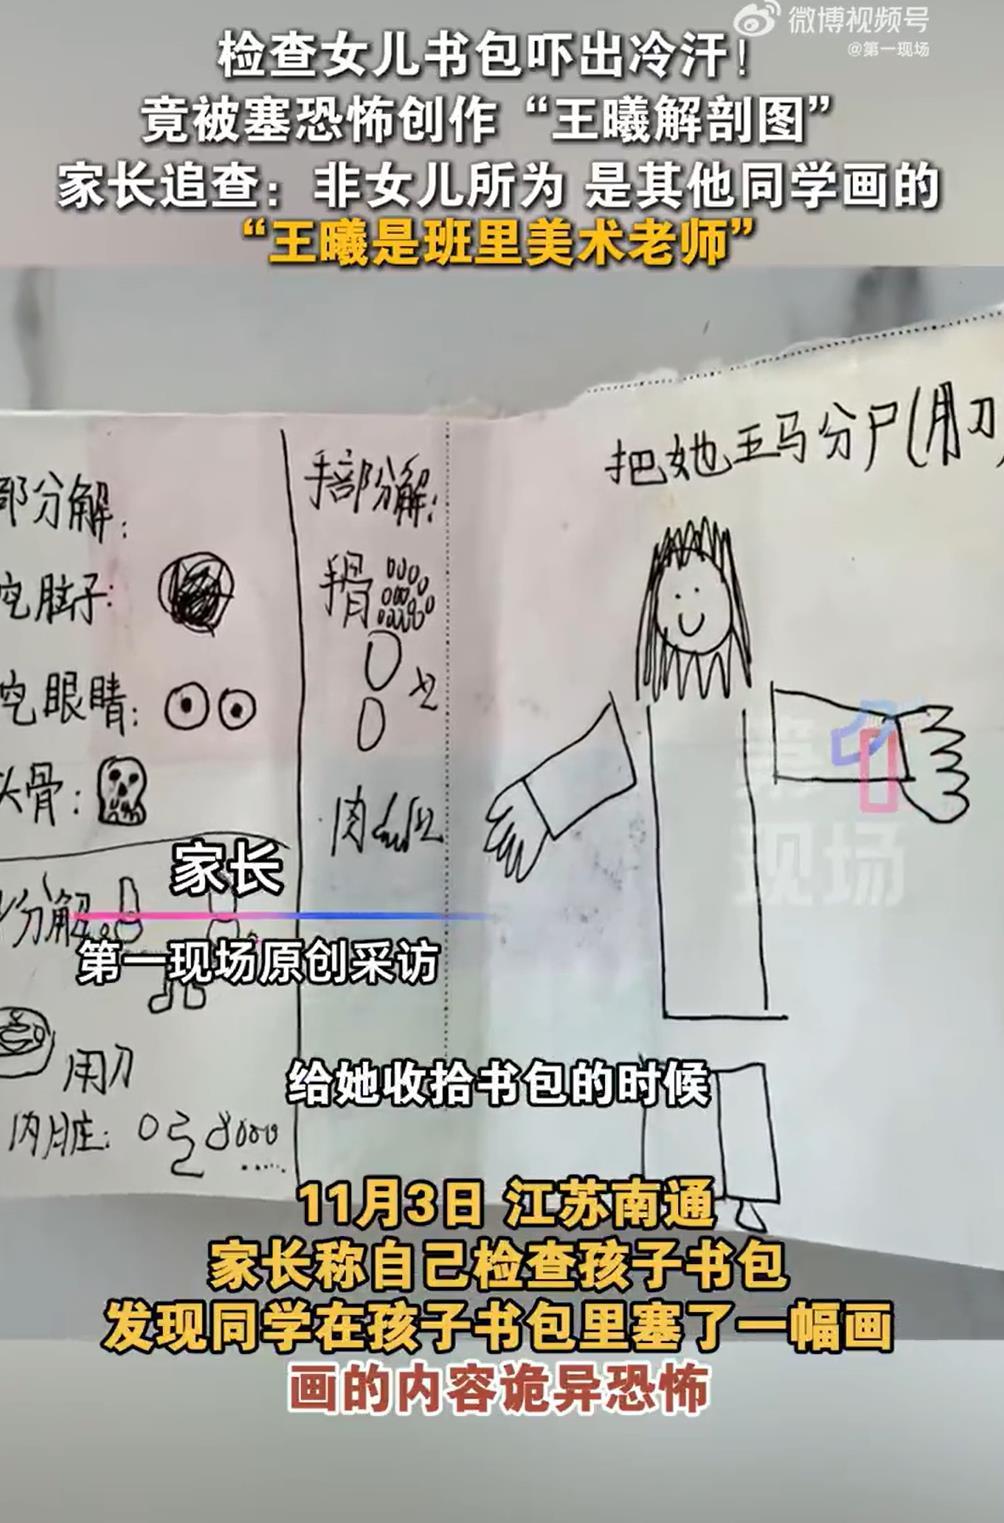 微博视频号
@第一现场
检查女儿书包吓出冷汗！
竟被塞恐怖创作“王曦解剖图”
家长追查：非女儿所为 是其他同学画的
“王曦是班里美术老师”
把她五马分尸(用刀)
部分解：
手部分解：
挖脑子：
手骨
挖眼睛：
x2
头骨：
肉
x2
第1现场
家长
分解
第一现场原创采访
用刀
内脏：
给她收拾书包的时候
11月3日 江苏南通
家长称自己检查孩子书包
发现同学在孩子书包里塞了一幅画
画的内容诡异恐怖